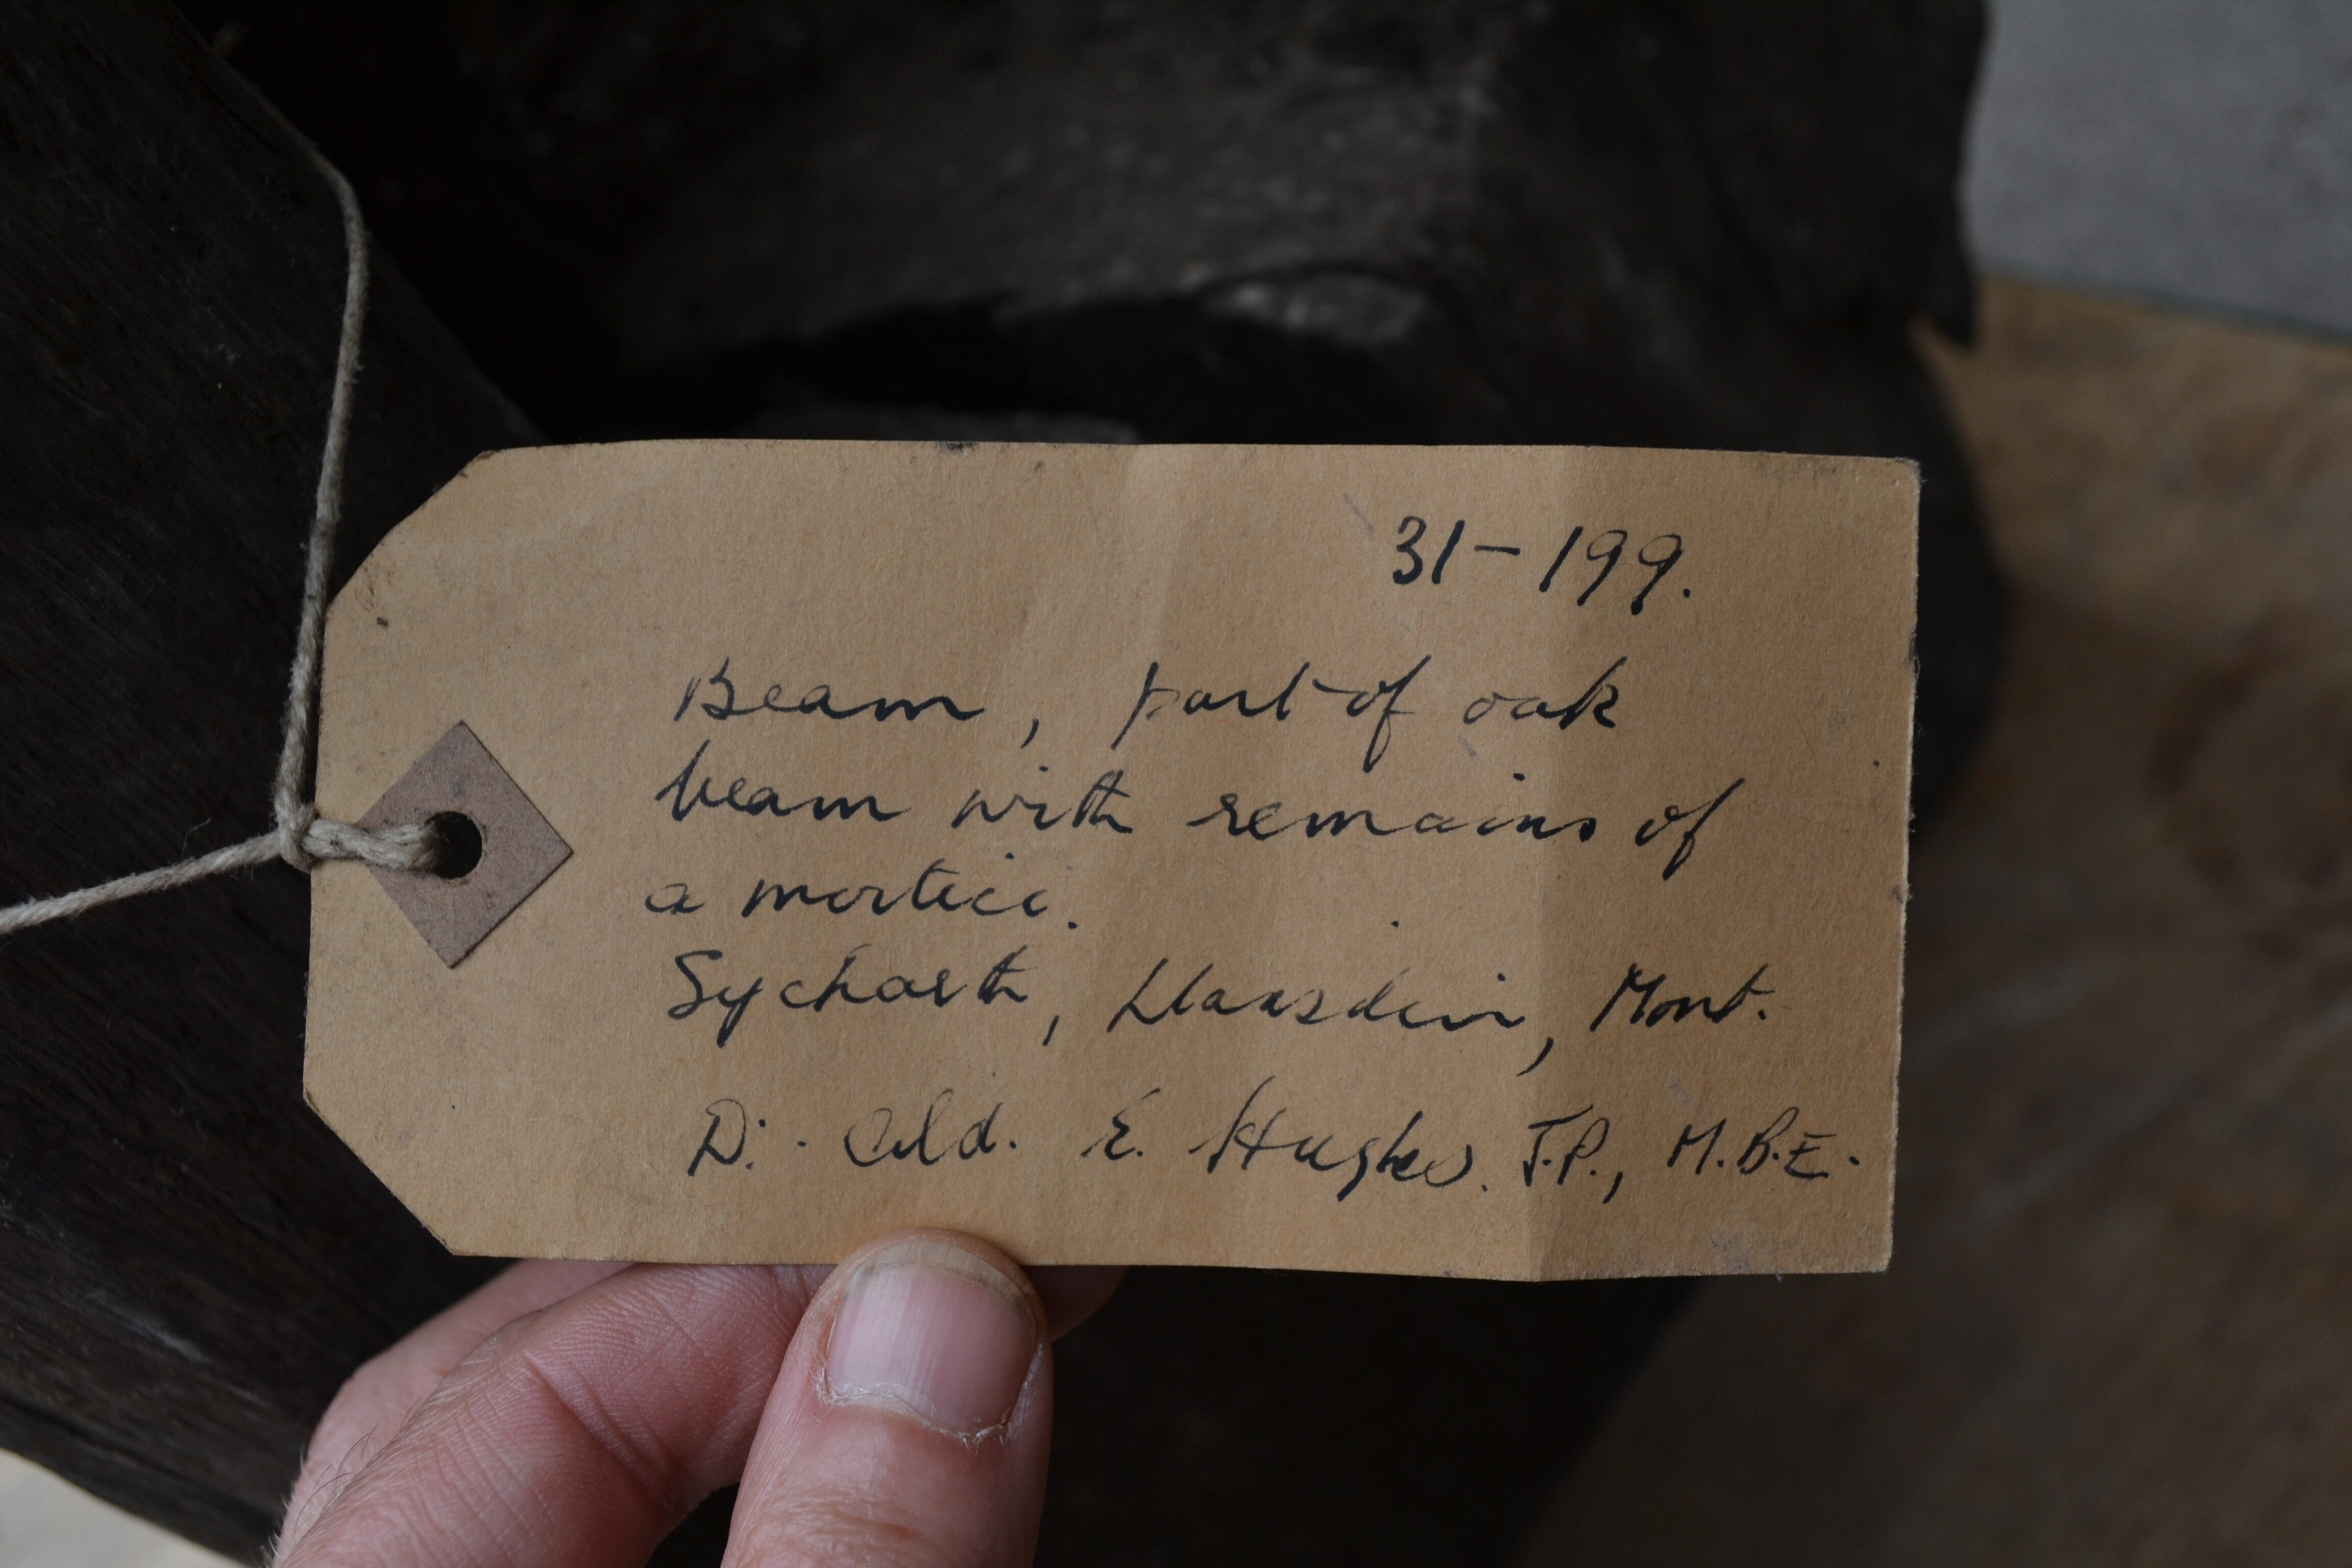 31-199.
Beam, part of oak
beam with remains of
a mortice.
Sycharth, Llansilin, Mont.
D:. Ald. E. Hughes. J.P., M.B.E.